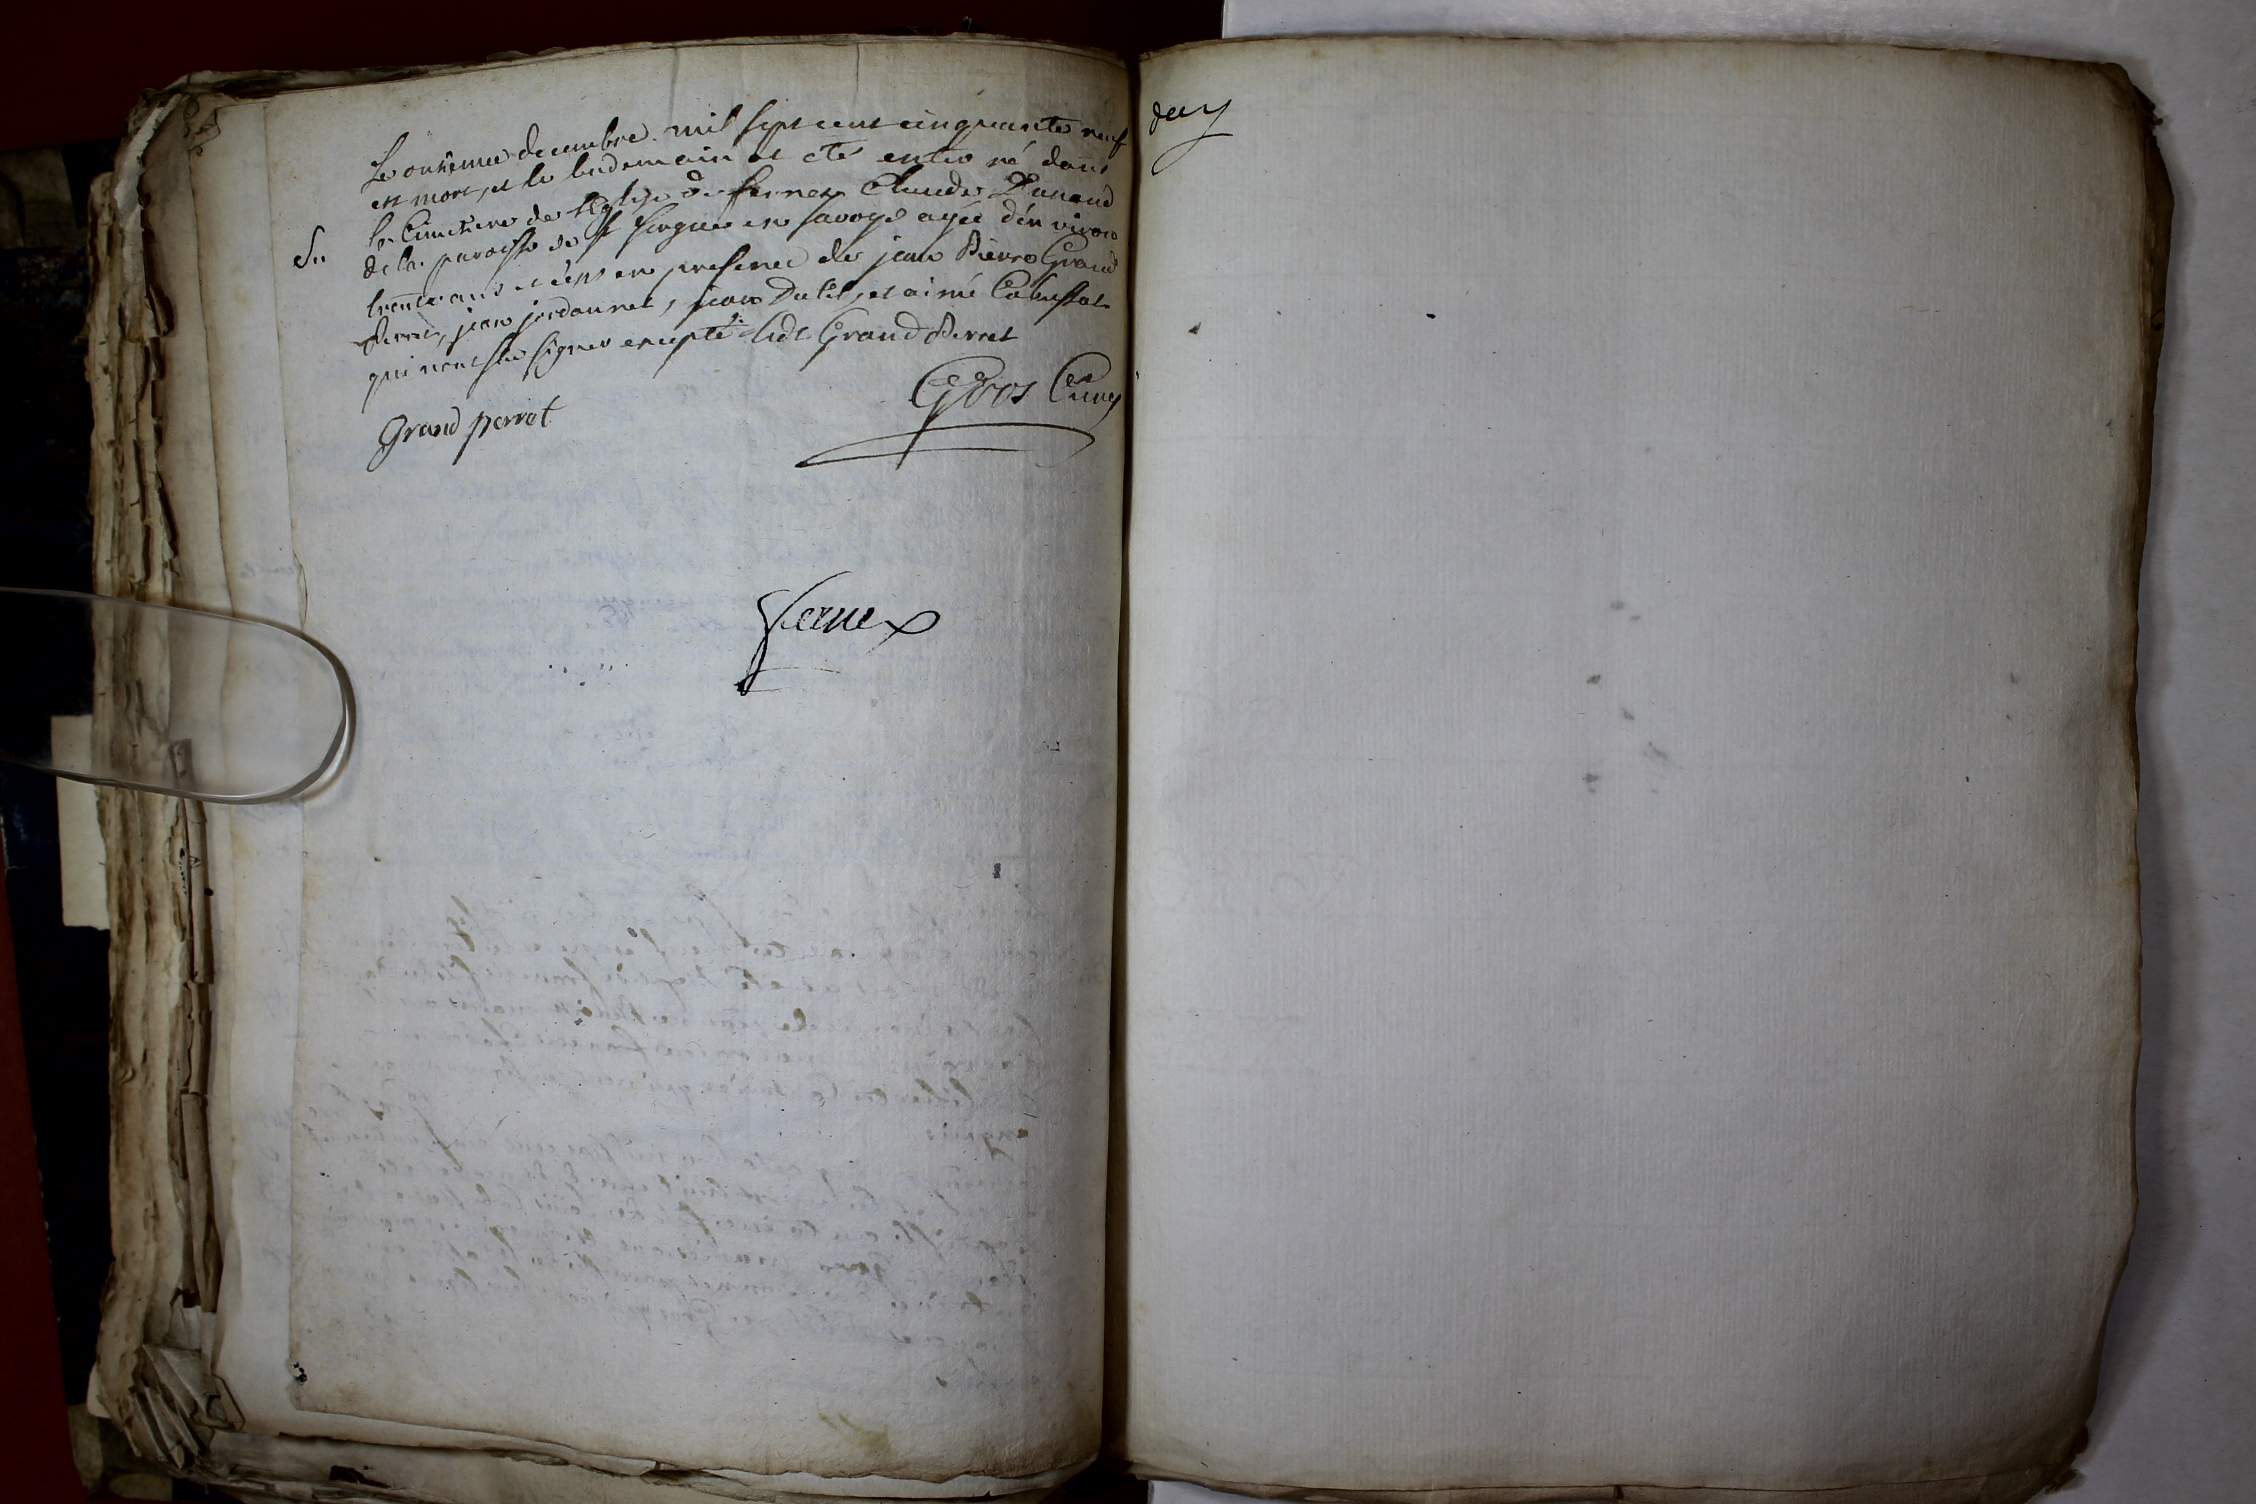 Le onsieme decembre mil sept cent cinquante neuf
est mort, et le lendemain at eté enterré dans
le Cimetiere de l'Eglise de fernex Claude Dunand
de la paroisse de St Sergue en savoye agée d'environ
Su
trente ans et ce en presence de jean Pierre Grand
Perret, jean jordannet, jean Dutil, et aimé
qui n'ont su signer excepté ledt Grand Perret
Gros Curé
Grand perret
fernex
day